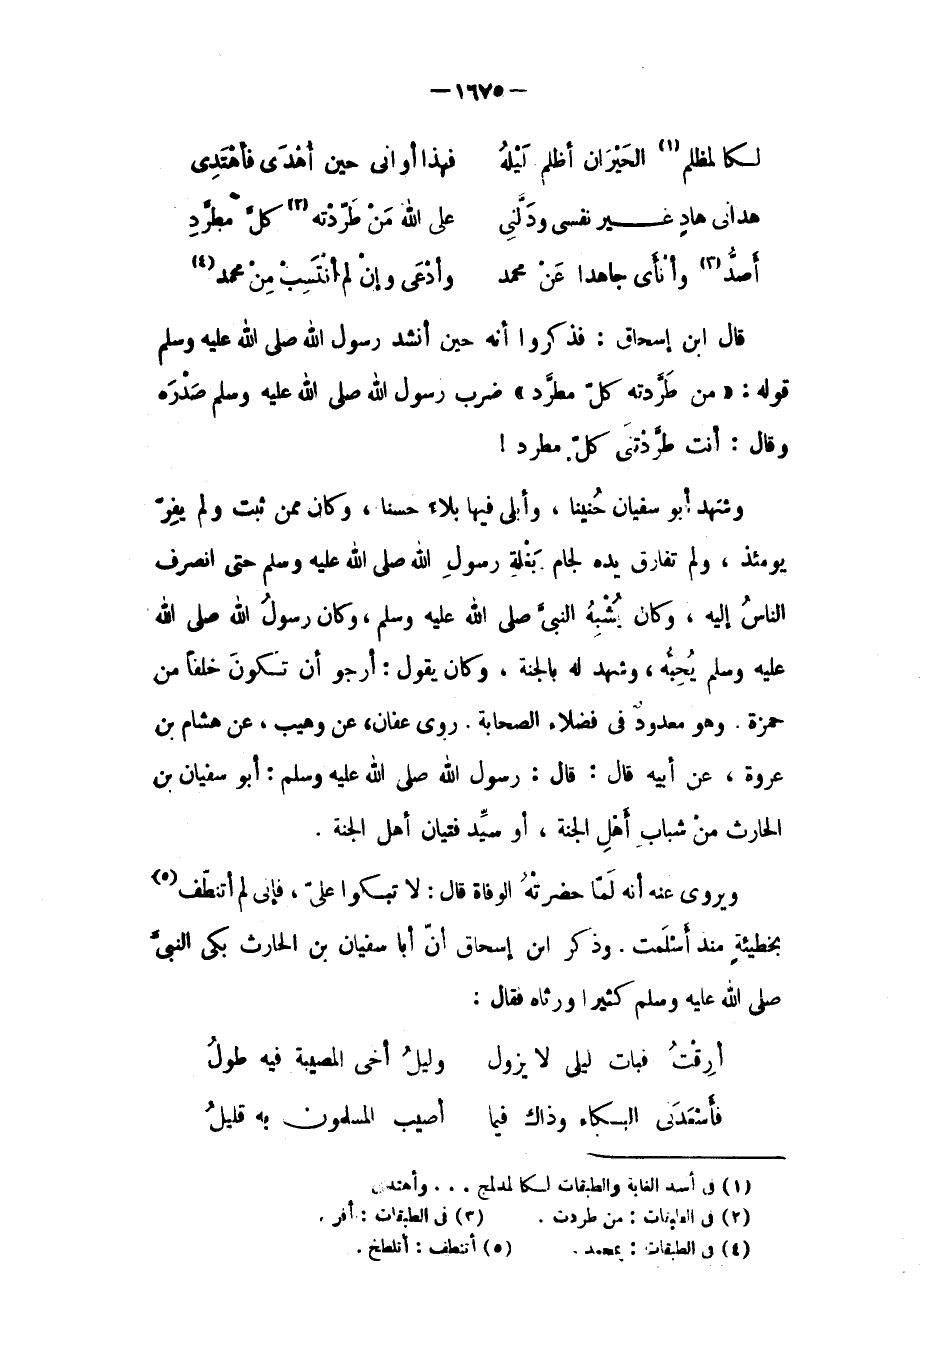 — ١٦٧٥ —
لكا لمظلم (١) الحَيْرَان أظلم لَيْلهُ فهذا أوانى حين أُهْدَى فأهْتَدِى
هدانى هادٍ غير نفسى ودَلَّنِى على الله مَنْ طَرّدْته (٢) كلَّ مطرَّدِ
أَصدُّ (٣) وأنْأَى جاهدا عَنْ محمد وأدْعَى وإنْ لم أنْتَسِبْ مِنْ محمد (٤)
قال ابن إسحاق : فذكروا أنه حين أنشد رسول الله صلى الله عليه وسلم
قوله : « من طَرَّدته كلّ مطرَّد » ضرب رسول الله صلى الله عليه وسلم صَدْرَه
وقال : أنت طرَّدْتَنى كلّ مطرد !
وشهد أبو سفيان حُنينا ، وأبلى فيها بلاء حسنا ، وكان ممن ثبت ولم يفِرّ
يومئذ ، ولم تفارق يده لجام بَغْلةِ رسولِ الله صلى الله عليه وسلم حتى انصرف
الناسُ إليه ، وكان يُشْبِهُ النبىَّ صلى الله عليه وسلم ، وكان رسولُ الله صلى الله
عليه وسلم يُحِبُّه ، وشهد له بالجنة ، وكان يقول : أرجو أن تكونَ خلفاً من
حمزة . وهو معدودٌ فى فضلاء الصحابة . روى عفان، عن وهيب ، عن هشام بن
عروة ، عن أبيه قال : قال : رسول الله صلى الله عليه وسلم : أبو سفيان بن
الحارث منْ شبابِ أَهْلِ الجنة ، أو سيِّد فتيان أهل الجنة .
ويروى عنه أنه لَمّا حضرتْهُ الوفاة قال : لا تبكوا علىّ ، فإنى لم أتنطّف (٥)
بخطيئةٍ منذ أَسْلَمت . وذكر ابن إسحاق أنّ أبا سفيان بن الحارث بكى النبىَّ
صلى الله عليه وسلم كثيرا ورثاه فقال :
أرِقْتُ فبات ليلى لا يزول وليلُ أخى المصيبة فيه طولُ
فأَسْعَدَنى البكاء وذاك فيما أصيب المسلمون به قليلُ
(١) فى أسد الغابة والطبقات لكا لمدلج . . . وأهتدى
(٢) فى الطبقات : من طردت . (٣) فى الطبقات : أفر .
(٤) فى الطبقات : بمحمد . (٥) أتنطف : أتلطخ .